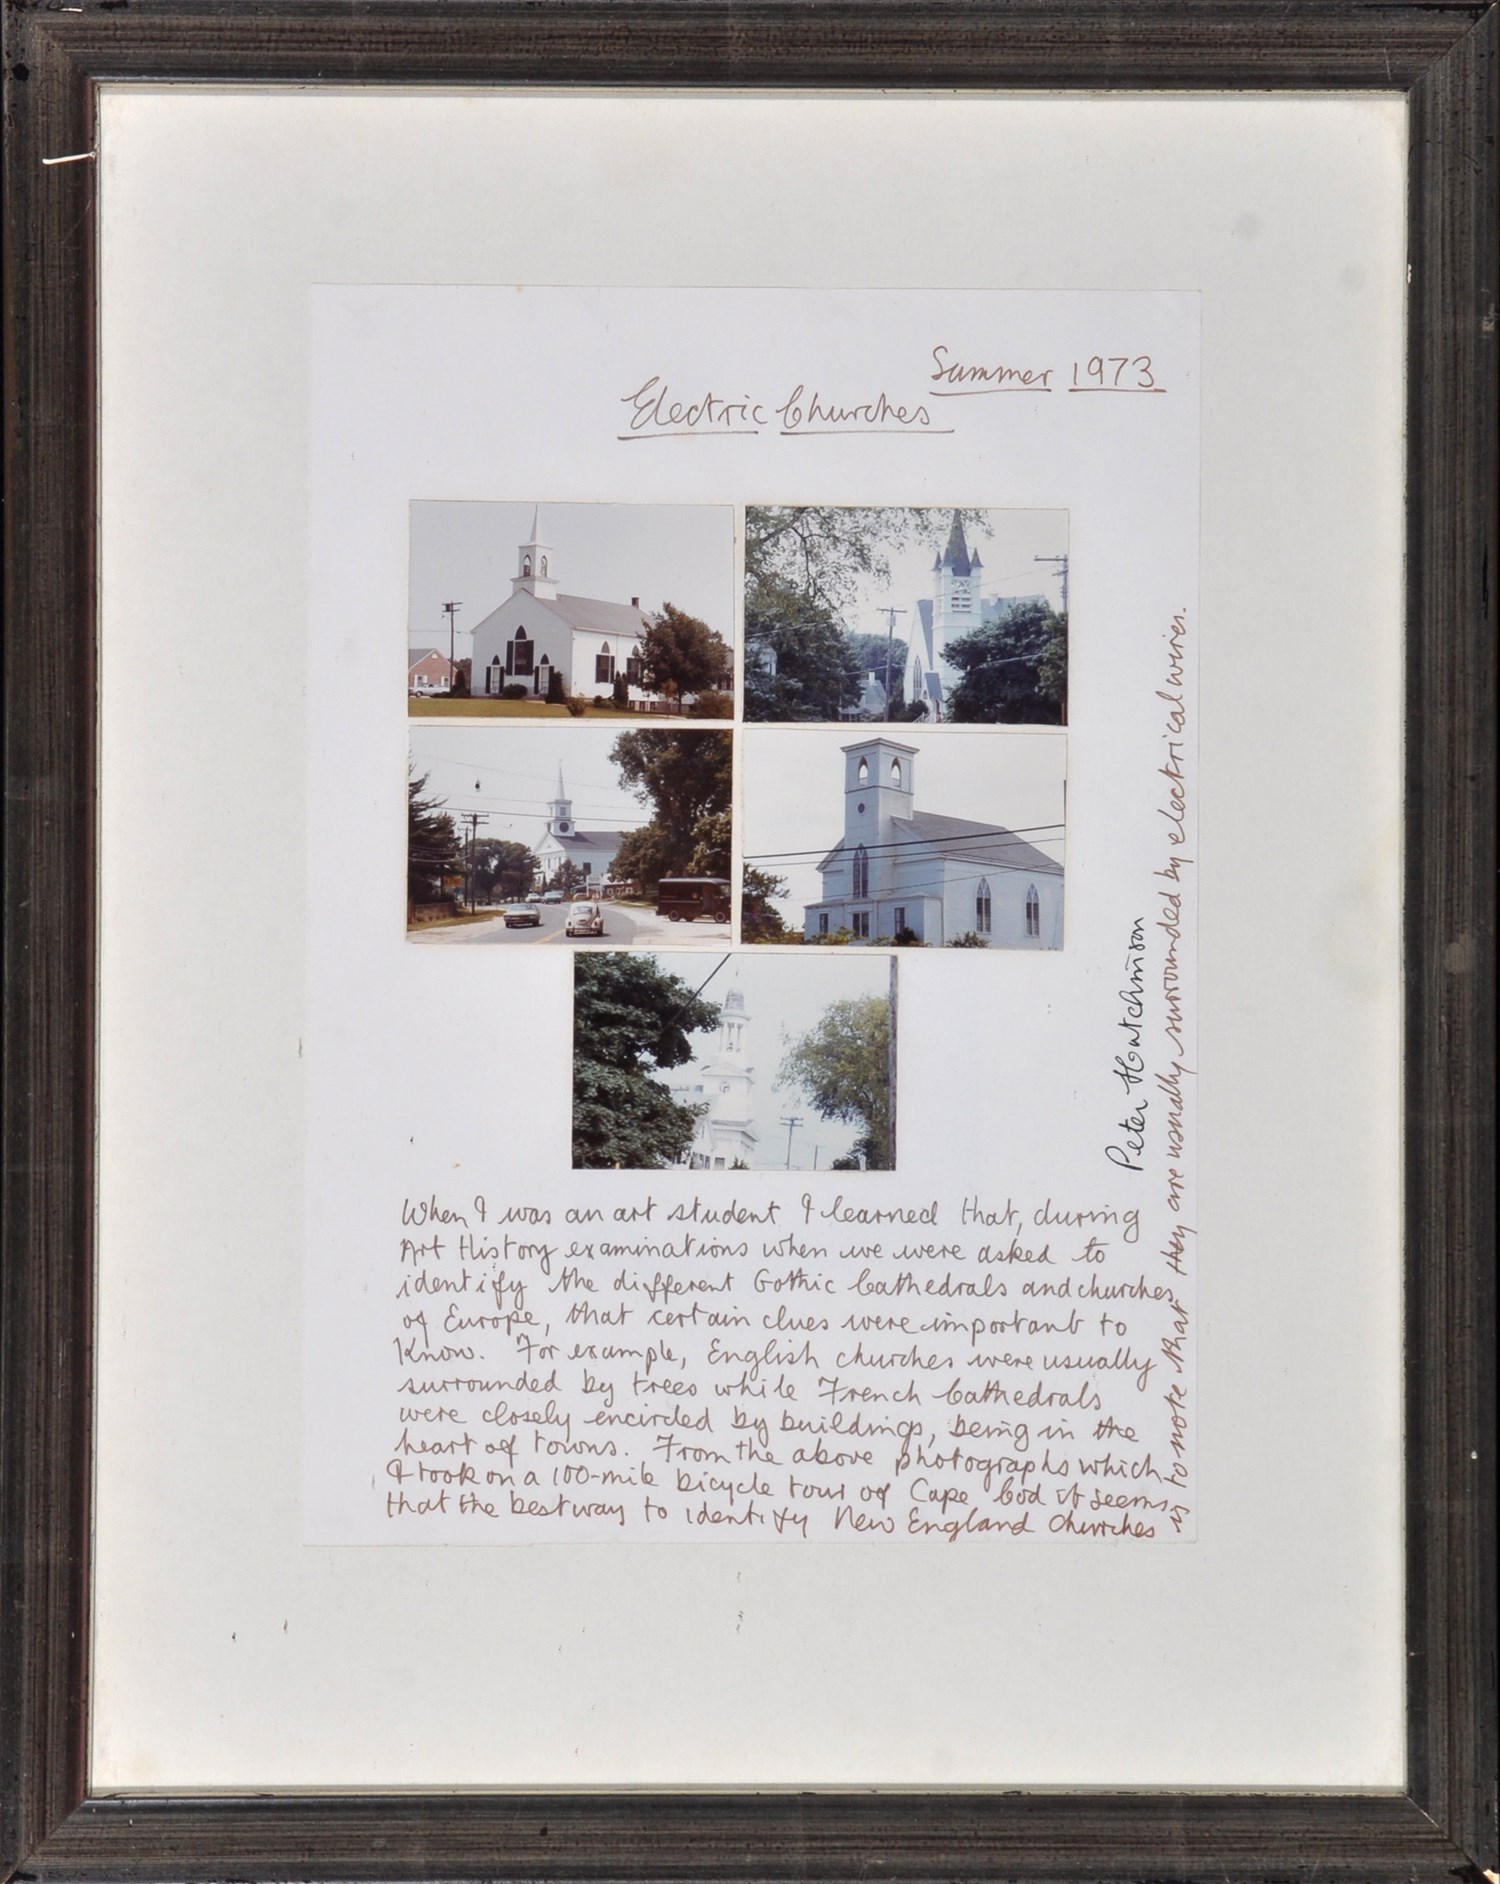 Summer 1973
Electric Churches
When I was an art student I learned that, during
Art History examinations when we were asked to
identify the different Gothic Cathedrals and churches
of Europe, that certain clues were important to
Know. For example, English churches were usually
surrounded by trees while French Cathedrals
were closely encircled by buildings, being in the
heart of towns. From the above photographs which
I took on a 100-mile bicycle tour of Cape Cod it seems
that the best way to identify New England Churches
is to note that they are usually surrounded by electrical wires.
Peter Hutchinson